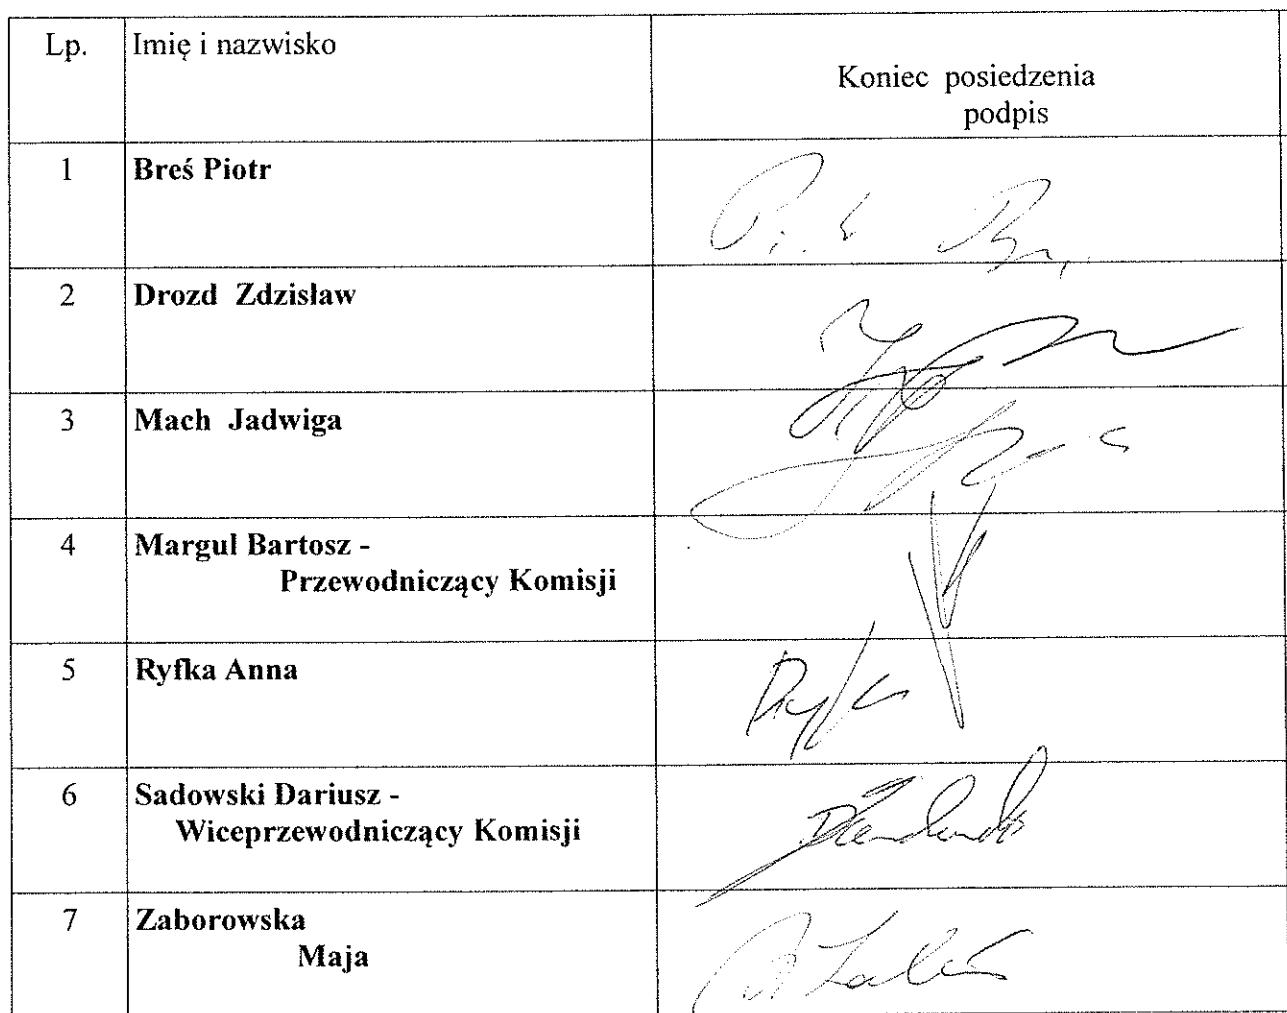 Lp. Imię i nazwisko
Koniec posiedzenia
podpis
1 Breś Piotr
2 Drozd Zdzisław
3 Mach Jadwiga
4 Margul Bartosz -
Przewodniczący Komisji
5 Ryfka Anna
6 Sadowski Dariusz -
Wiceprzewodniczący Komisji
7 Zaborowska
Maja